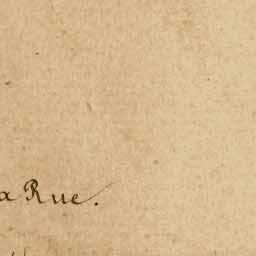 a Rue.